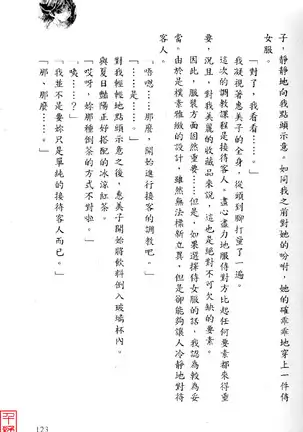 子，靜靜地向我點頭示意。如同我之前對她的吩咐，她的確乖乖地穿上一件侍
女服。
「對了，我看看……。」
我凝視著惠美子的全身，從頭到腳打量了一遍。
這次的調教課程是接待客人，盡心盡力地服侍對方比起任何要素都來得重
要，況且，對我美麗的收藏品來說，這也是絕對不可欠缺的要素。
因此，服裝方面固然重要……但是，如果選擇侍女服的話，我認為較為妥
當。由於是樸素雅緻的設計，雖然無法標新立異，但是卻能夠讓人冷靜地對待
客人。
「唔嗯……那麼，開始進行接客的調教吧。」
「……是……。」
對我輕輕地點頭示意之後，惠美子開始將飲料倒入玻璃杯內。
與夏日豔陽正好搭配的冰涼紅茶。
「哎呀，妳那種倒茶的方式不對啦。」
「咦……？」
「我並不是要妳只是單純的接待客人而已。」
「那、那麼……。」
123